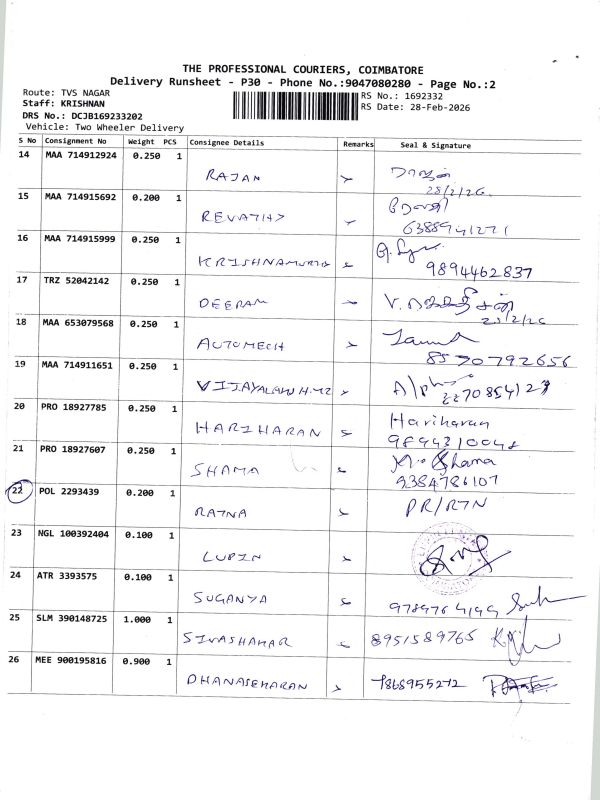 THE PROFESSIONAL COURIERS, COIMBATORE
Delivery Runsheet - P30 - Phone No.:9047080280 - Page No.:2
Route: TVS NAGAR
Staff: KRISHNAN
DRS No.: DCJB169233202
Vehicle: Two Wheeler Delivery
RS No.: 1692332
RS Date: 28-Feb-2026
S No Consignment No Weight PCS Consignee Details Remarks Seal & Signature
14 MAA 714912924 0.250 1
RAJAN
28/2/26
15 MAA 714915692 0.200 1
REVATHY
6388941271
16 MAA 714915999 0.250 1
KRISHNAMURTH
9894462837
17 TRZ 52042142 0.250 1
DEERAM
28/2/26
18 MAA 653079568 0.250 1
AUTOMECH
8570792656
19 MAA 714911651 0.250 1
20 PRO 18927785 0.250 1
HARIHARAN Hariharan
21 PRO 18927607 0.250 1
SHAMA Shama
9384786107
22 POL 2293439 0.200 1
RATNA PR/RTN
23 NGL 100392404 0.100 1
LUPIN
24 ATR 3393575 0.100 1
SUGANYA
25 SLM 390148725 1.000 1
8951589765
26 MEE 900195816 0.900 1
DHANASEKARAN 7868955272